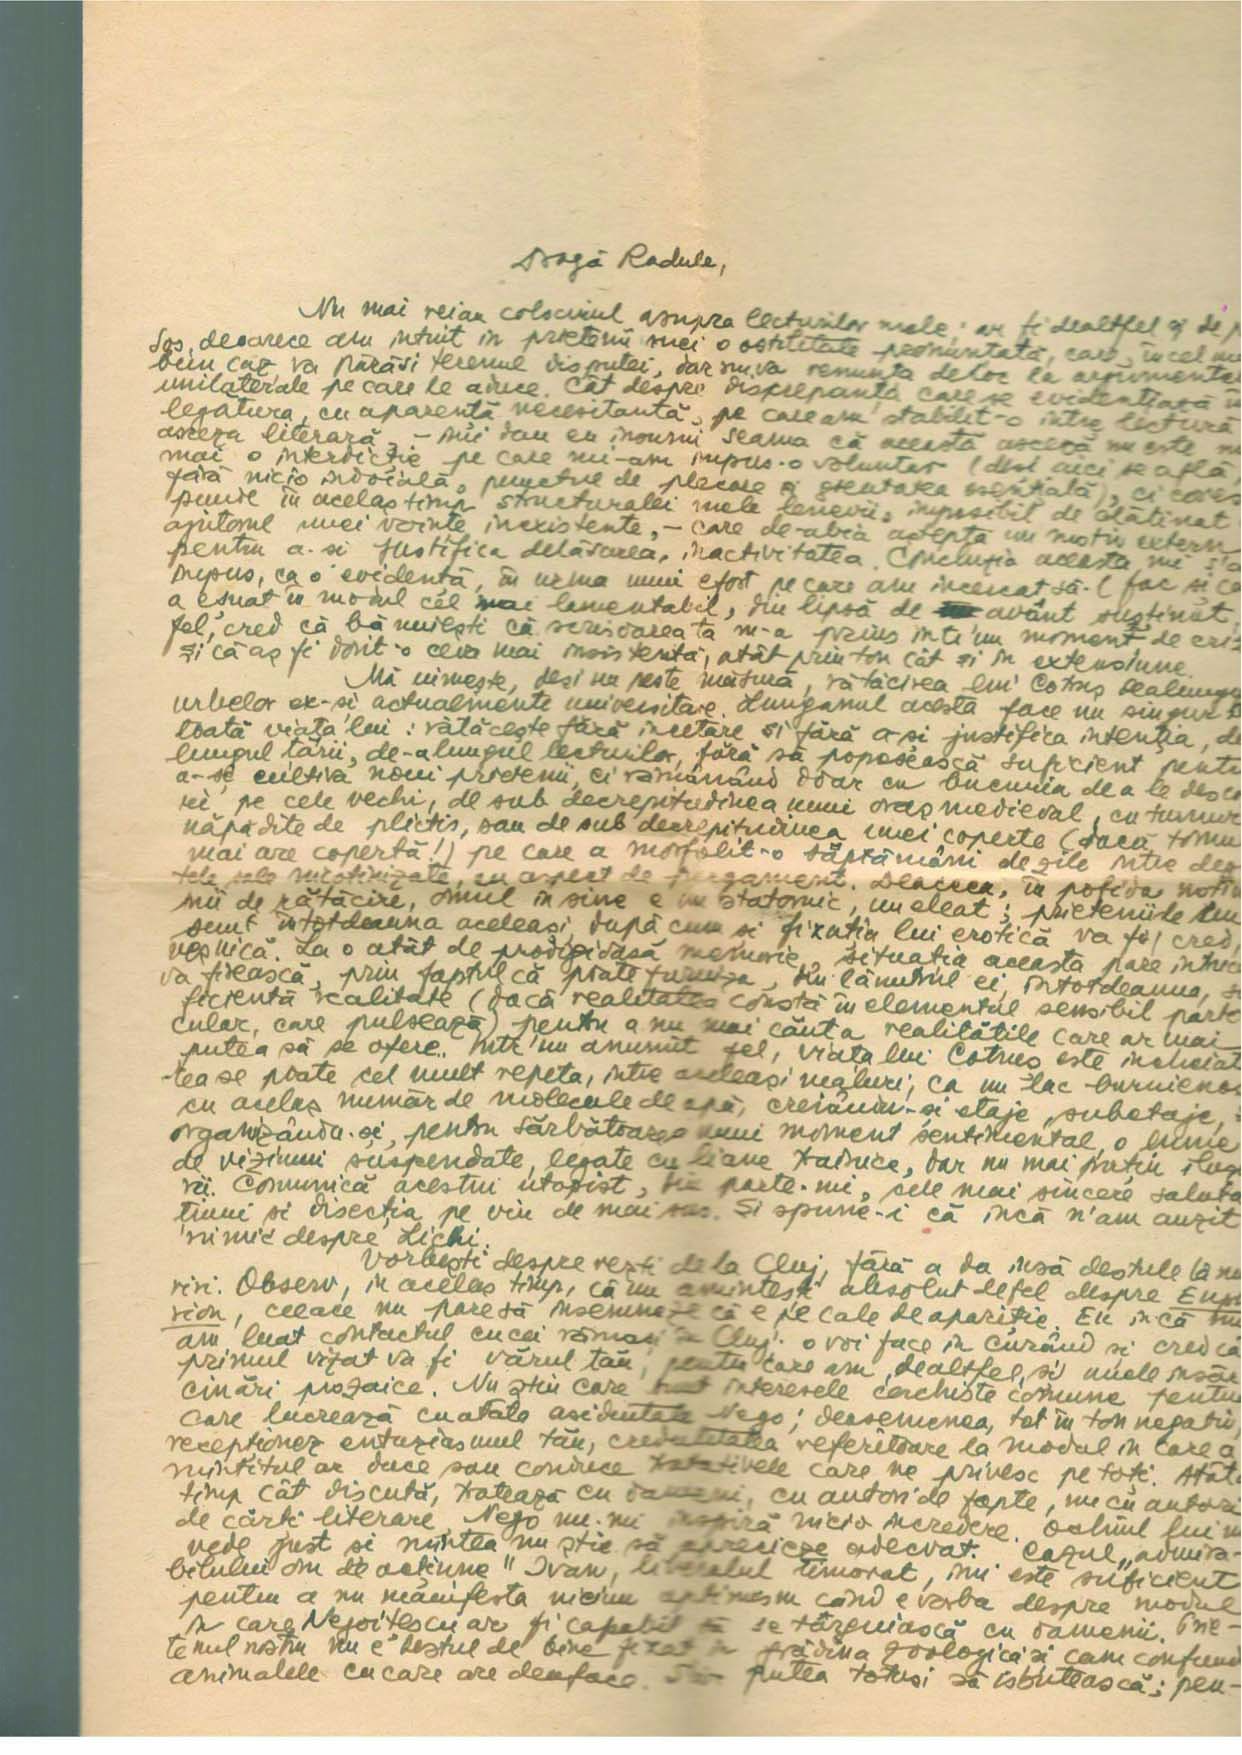 Dragă Radule,
Nu mai reiau colocviul asupra lecturilor mele: ar fi dealtfel și de p
sos, deoarece am intuit în prietenii mei o ostilitate pronunțată, care, în cel mai
bun caz, va părăsi terenul disputei, dar nu va renunța deloc la argumentele
unilaterale pe care le aduce. Cât despre discrepanța care se evidențiază în
legătura, cu aparență necesitantă, pe care am stabilit-o între lectură
asceza literară, – îmi dau eu însumi seama că această asceză nu este nu
mai o interdicție pe care mi-am impus-o voluntar (deși aici se află,
fără nicio îndoială, punctul de plecare și orientarea esențială), ci cores
punde în acelaș timp structuralei mele lenevii, imposibil de clătinat
ajutorul unei voințe inexistente, – care de-abia aștepta un motiv extern
pentru a-și justifica delăsarea, inactivitatea. Concluzia aceasta mi s'a
impus, ca o evidență, în urma unui efort pe care am încercat să-l fac și ca
a eșuat în modul cel mai lamentabil, din lipsă de avânt susținut.
fel, cred că bănuiești că scrisoarea ta m-a prins într'un moment de criz
și că aș fi dorit-o ceva mai insistentă, atât prin ton cât și în extensiune.
Mă uimește, deși nu peste măsură, rătăcirea lui Cotruș dealungu
urbelor ex-și actualmente universitare. Lunganul acesta face un singur
toată viața lui: rătăcește fără încetare și fără a-și justifica intenția, de
lungul țării, de-alungul lecturilor, fără să poposească suficient pentru
a-și cultiva noui prietenii, ci rămânând doar cu bucuria de a le desco
ri, pe cele vechi, de sub decrepitudinea unui oraș medieval, cu turnur
năpădite de plictis, sau de sub decrepitudinea unei coperte (dacă tomu
mai are copertă!) pe care a morfolit-o săptămâni de zile între dege
tele sale nicotinizate, cu aspect de pergament. Deaceea, în pofida noțiu
nii de rătăcire, omul în sine e un statornic, un eleat; prieteniile lui
sunt întotdeauna aceleași, după cum și fixația lui erotică va fi, cred,
veșnică. La o atât de prodigioasă memorie, situația aceasta pare întruc
va firească, prin faptul că poate furniza, din lăuntrul ei, întotdeauna, su
ficientă realitate (dacă realitatea constă în elementul sensibil parti
cular, care pulsează) pentru a nu mai căuta realitățile care ar mai
putea să se ofere. Într'un anumit fel, viața lui Cotruș este încheiat
-tea se poate cel mult repeta, între aceleași maluri, ca un lac burnienos
cu acelaș număr de molecule de apă, creiându-și etaje, subetaje,
organizându-și, pentru sărbătoarea unui moment sentimental, o lume
de viziuni suspendate, legate cu liane trainice, dar nu mai puțin iluzo
rii. Comunică acestui utopist, din parte-mi, cele mai sincere saluta
țiuni și disecția pe viu de mai sus. Și spune-i că încă n'am auzit
nimic despre Lichi.
Vorbești despre vești dela Cluj, fără a da însă destule lămu
riri. Observ, în acelaș timp, că nu amintești absolut defel despre Eupho
rion, ceeace nu pare să însemneze că e pe cale de apariție. Eu încă nu
am luat contactul cu cei rămași în Cluj: o voi face în curând și cred că
primul vizat va fi vărul tău, pentru care am, dealtfel, și unele însăr
cinări prozaice. Nu știu care sunt interesele cerchiste comune pentru
care lucrează cu atâta asiduitate Nego; deasemenea, tot în ton negativ,
recepționez entuziasmul tău, credulitatea referitoare la modul în care a
mintitul ar duce sau conduce tratativele care ne privesc pe toți. Atâta
timp cât discută, tratează cu oameni, cu autori de fapte, nu cu autori
de cărți literare, Nego nu-mi inspiră nicio încredere. Ochiul lui nu
vede just și mintea nu știe să aprecieze adecvat. Cazul „admira-
bilului om de acțiune" Ivan, liberalul timorat, îmi este suficient
pentru a nu manifesta niciun optimism când e vorba despre modul
în care Negoițescu ar fi capabil să se târguiască cu oamenii. Prie-
tenul nostru nu e destul de bine fixat în grădina zoologică și cam confund
animalele cu care are deaface. S'ar putea totuși să isbutească; pen-